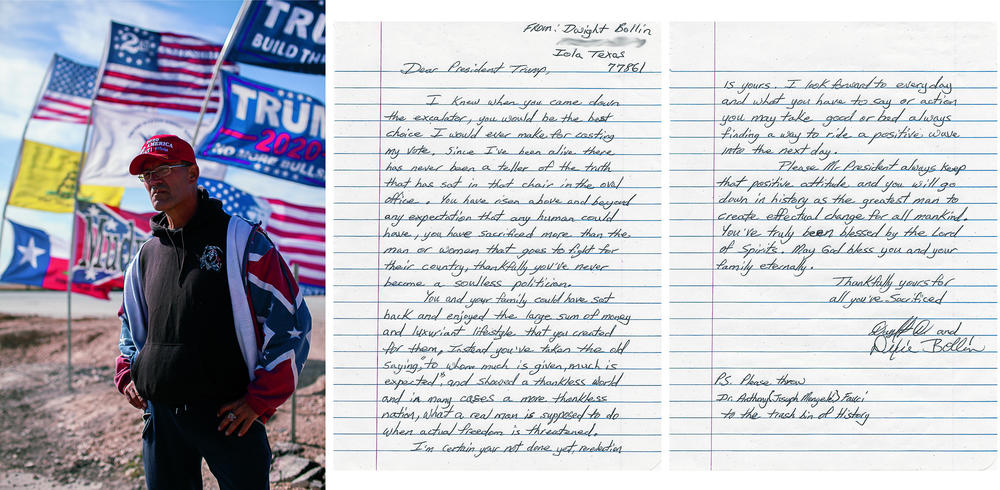 TRUMP
BUILD TH
2nd
TRUM
2020
NO MORE BULLS
AMERICA
From: Dwight Bollin
Iola Texas
77861
Dear President Trump,
I knew when you came down
the excalator, you would be the best
choice I would ever make for casting
my vote. Since I've been alive there
has never been a teller of the truth
that has sat in that chair in the oval
office. You have risen above and beyond
any expectation that any human could
have, you have sacrificed more than the
man or woman that goes to fight for
their country, thankfully you've never
become a soulless politician.
You and your family could have sat
back and enjoyed the large sum of money
and luxuriant lifestyle that you created
for them, Instead you've taken the old
saying, "to whom much is given, much is
expected", and showed a thankless world
and in many cases a more thankless
nation, what a real man is supposed to do
when actual freedom is threatened.
I'm certain your not done yet, reelection
is yours. I look forward to everyday
and what you have to say or action
you may take good or bad always
finding a way to ride a positive wave
into the next day.
Please Mr President always keep
that positive attitude and you will go
down in history as the greatest man to
create effectual change for all mankind.
You've truly been blessed by the Lord
of Spirits. May God bless you and your
family eternally.
Thankfully yours for
all you've Sacrificed
Dwight D. and
Dixie Bollin
P.S. Please throw
Dr. Anthony (Joseph Mengele) Fauci
to the trash bin of History